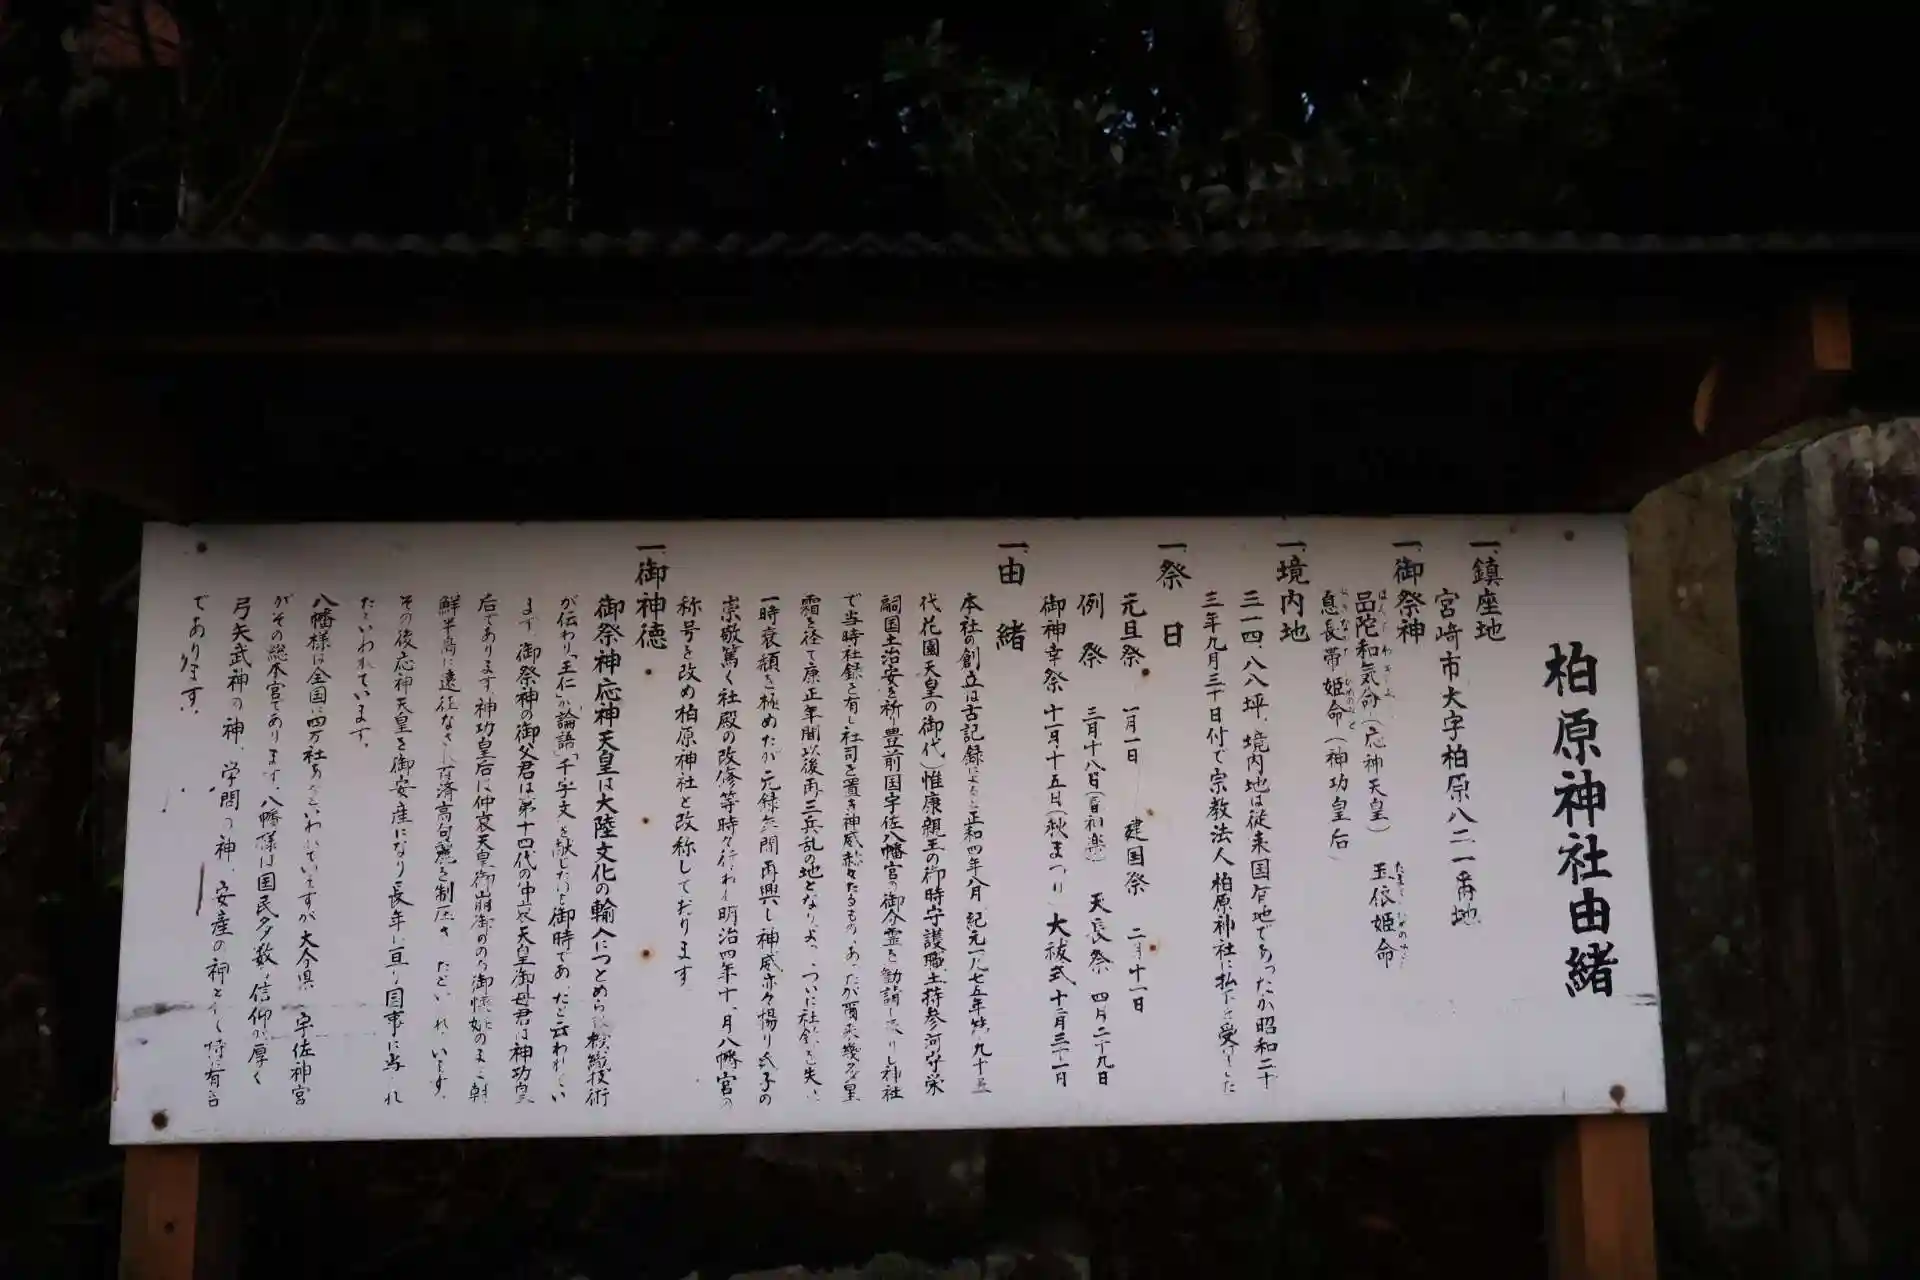 柏原神社由緒
一、鎮座地
宮崎市大字柏原八二一番地
一、御祭神
品陀和気命（応神天皇） 玉依姫命
息長帯姫命（神功皇后）
一、境内地
三一四、八八坪、境内地は従来国有地であったが昭和二十
三年九月三十日付で宗教法人柏原神社に払下を受けした
一、祭日
元旦祭 一月一日 建国祭 二月十一日
例祭 三月十八日（春神楽） 天長祭 四月二十九日
御神幸祭 十一月十五日（秋まつり） 大祓式 十二月三十一日
一、由緒
本社の創立は古記録によると正和四年八月、紀元一九七五年第九十五
代花園天皇の御代）惟康親王の御時守護職土持参河守栄
嗣国土治安を祈り豊前国宇佐八幡宮の御分霊を勧請したりし神社
で当時社録を有し社司を置き神威赫々たるものあったが爾来幾多星
霜を径て康正年間以後再三兵乱の地となりよってついに社録を失い
一時衰頽を極めたが元録年間再興し神威赤々揚り氏子の
崇敬篤く社殿の改修等時々行われ明治四年十一月八幡宮の
称号を改め柏原神社と改称しております
一、御神徳
御祭神応神天皇は大陸文化の輸入につとめられ機織技術
が伝わり「王仁」が論語「千字文」を献じたのも御時であったと云われてい
ます、御祭神の御父君は第十四代の仲哀天皇御母君は神功皇
后であります、神功皇后は仲哀天皇御崩御ののち御懐妊のまゝ朝
鮮半島に遠征なされ百済高句麗を制圧されたといわれています、
その後応神天皇を御安産になり長年に亘り国事に当られ
たといわれています。
八幡様は全国に四万社あるといわれていますが大分県 宇佐神宮
がその総本宮であります、八幡様は国民多数の信仰が厚く
弓矢武神の神、学問の神、安産の神として特に有名
であります、